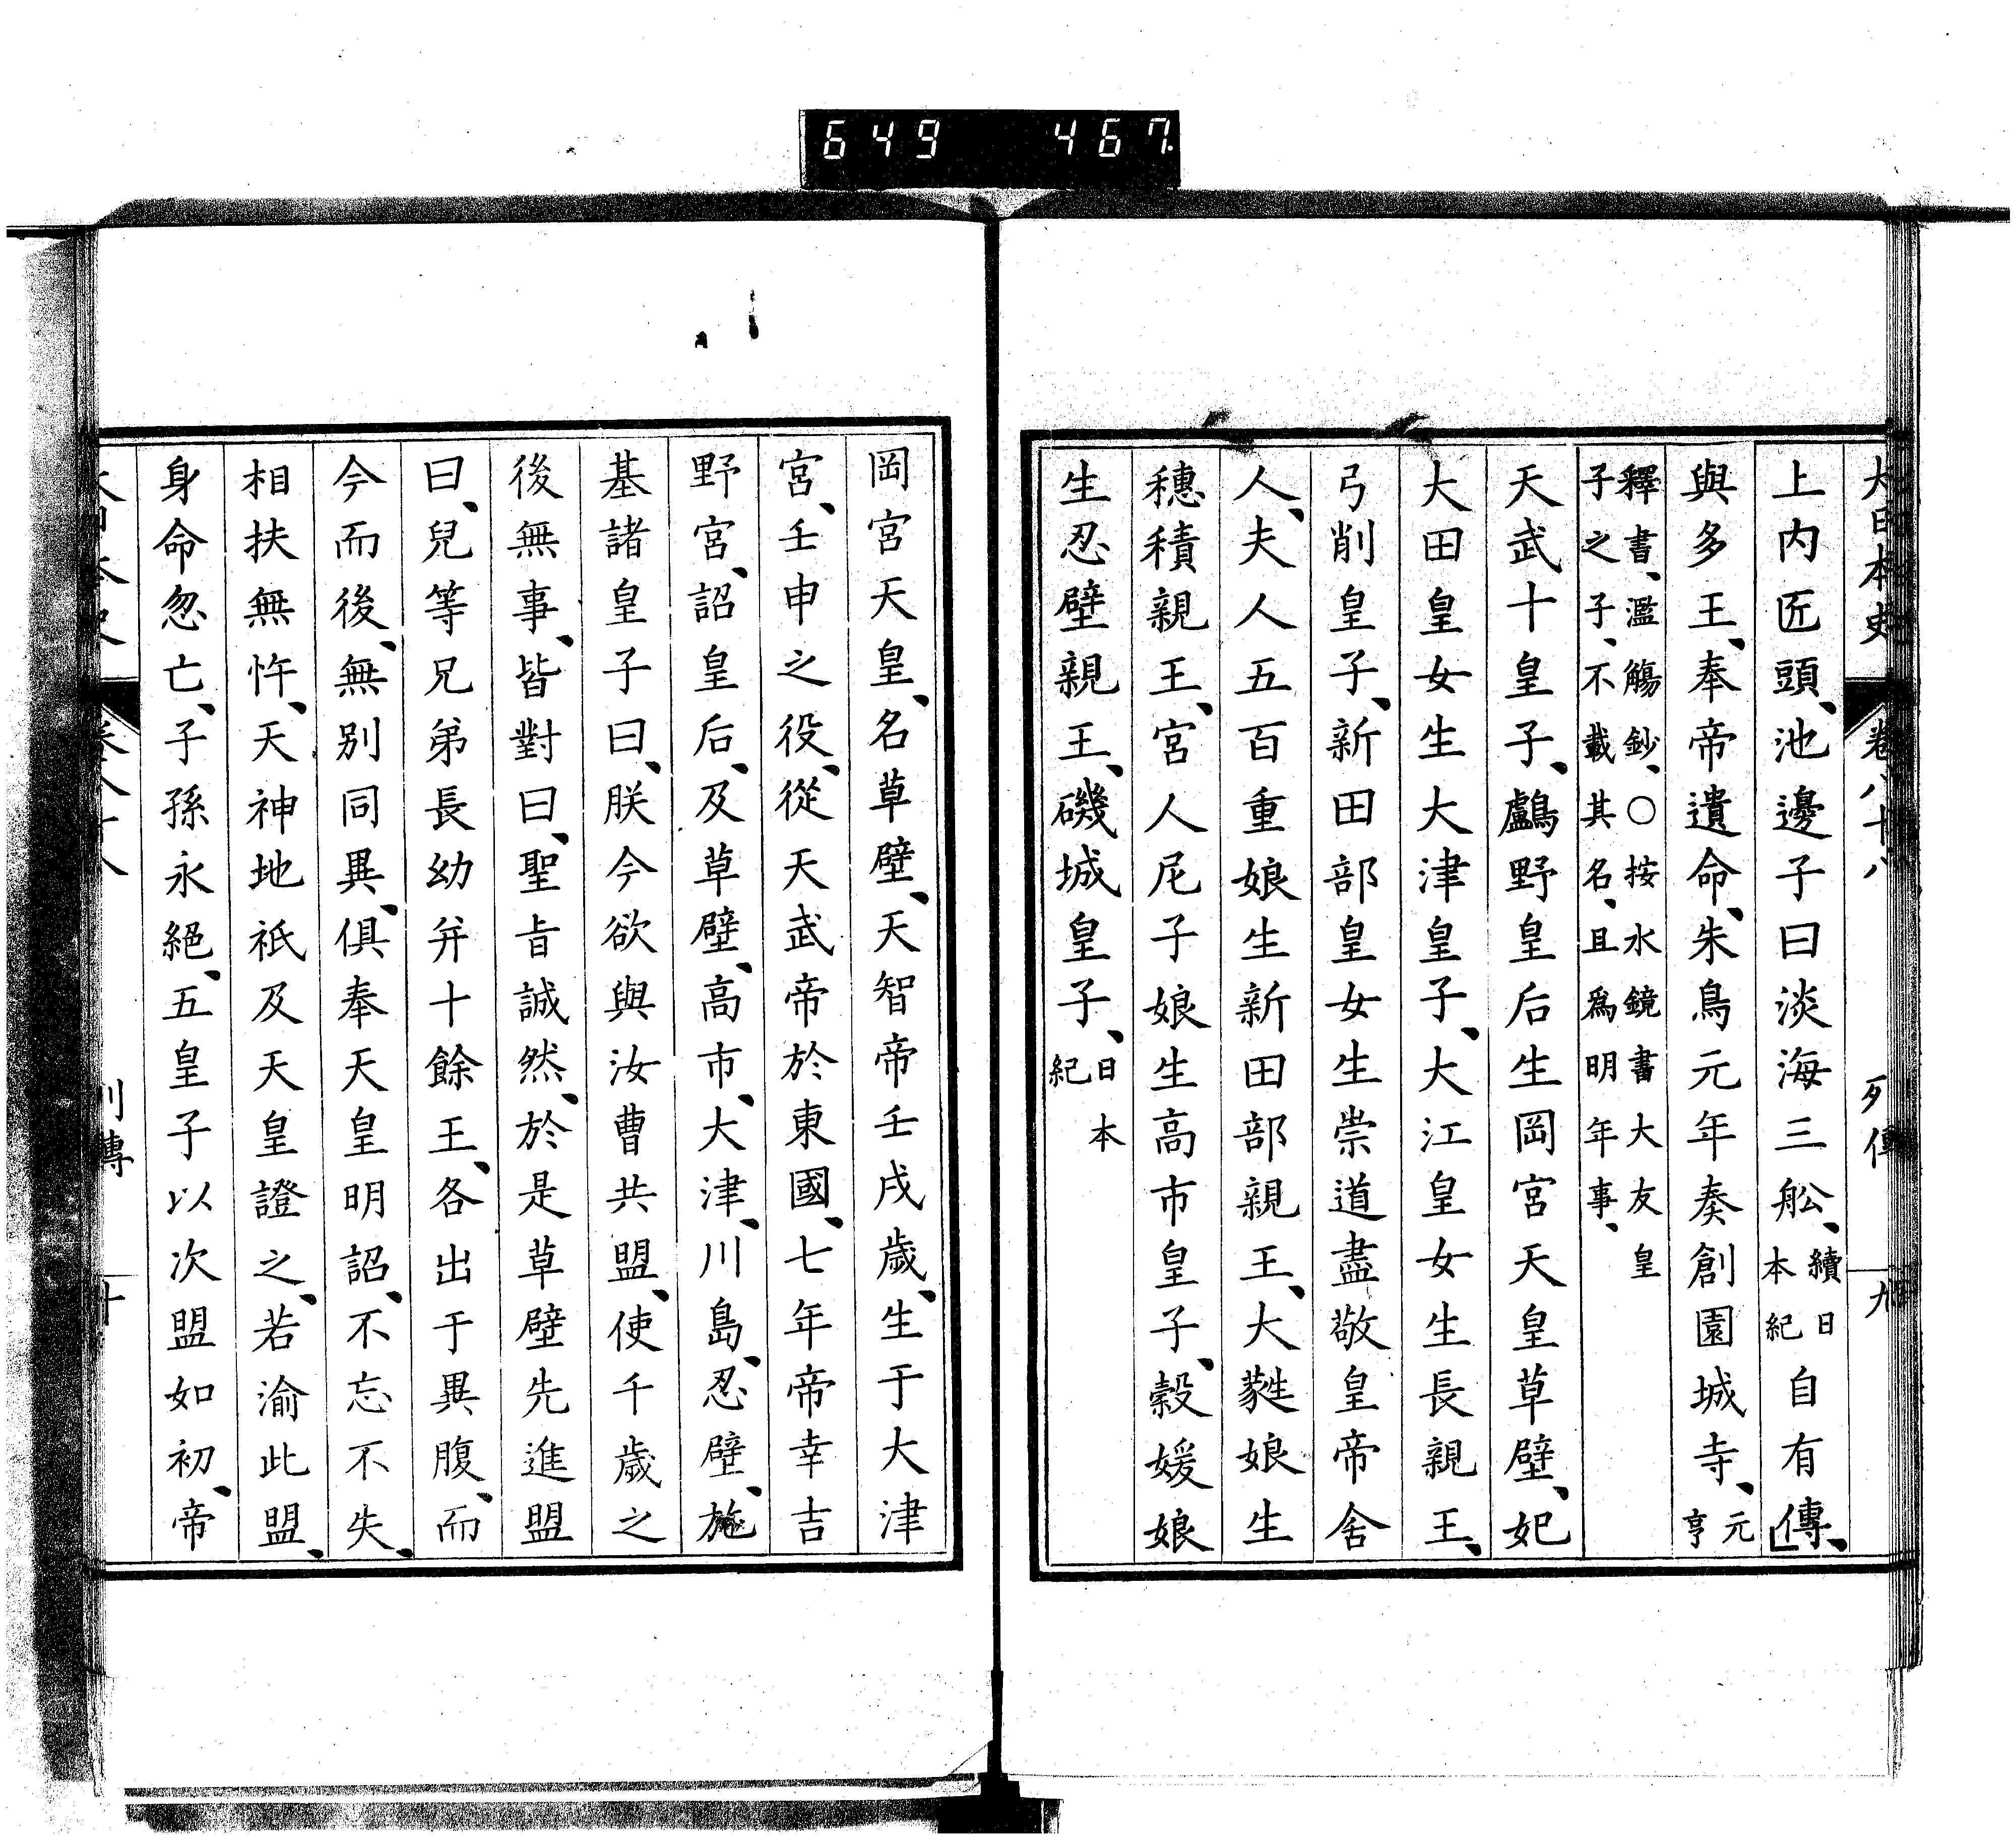 649 467.
大日本史 卷八十八 列傳 九
上内匠頭、池邊子曰淡海三舩、續日本紀自有傳、
與多王、奉帝遺命、朱鳥元年奏創園城寺、元亨
釋書、濫觴鈔、○按水鏡書大友皇
子之子、不載其名、且爲明年事、
天武十皇子、鸕野皇后生岡宮天皇草壁、妃
大田皇女生大津皇子、大江皇女生長親王、
弓削皇子、新田部皇女生崇道盡敬皇帝舍
人、夫人五百重娘生新田部親王、大蕤娘生
穗積親王、宮人尼子娘生高市皇子、穀媛娘
生忍壁親王、磯城皇子、日本紀
岡宮天皇、名草壁、天智帝壬戌歲、生于大津
宮、壬申之役、從天武帝於東國、七年帝幸吉
野宮、詔皇后、及草壁、高市、大津、川島、忍壁、施
基諸皇子曰、朕今欲與汝曹共盟、使千歲之
後無事、皆對曰、聖旨誠然、於是草壁先進盟
曰、兒等兄弟長幼幷十餘王、各出于異腹、而
今而後、無別同異、俱奉天皇明詔、不忘不失、
相扶無忤、天神地祇及天皇證之、若渝此盟、
身命忽亡、子孫永絕、五皇子以次盟如初、帝
列傳